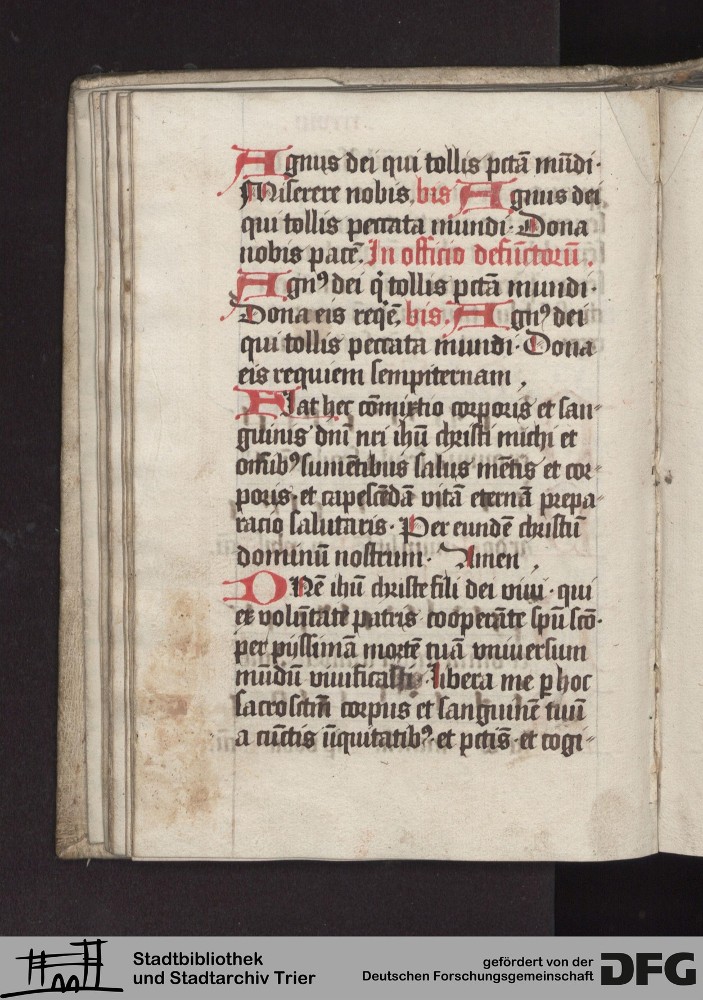 Agnus dei qui tollis pctã mũdi·
Miserere nobis. bis Agnus dei
qui tollis peccata mundi· Dona
nobis pacẽ. In officio defũctorũ.
Agnꝰ dei q̇ tollis pctã mundi·
Dona eis reqẽ. bis. Agnꝰ dei
qui tollis peccata mundi· Dona
eis requiem sempiternam,
Fiat hec cõmixtio corporis et san-
guinis dnĩ nri ihũ christi michi et
oĩnibꝰ sumẽtibus salus mẽtis et cor-
poris· et capescẽdã vitã eternã prepa-
racio salutaris· Per eundẽ christũ
dominũ nostrum· Amen,
DNẽ ihũ christe fili dei viui· qui
ex volũtate patris cooperãte spũ scõ·
per pijssimã mortẽ tuã vniuersum
mũdũ viuificasti· libera me ꝑ hoc
sacrosctm̃ corpus et sanguinẽ tuũ
a cũctis iniquitatibꝰ· et pctis̃· et cogi-
Stadtbibliothek
und Stadtarchiv Trier
gefördert von der
Deutschen Forschungsgemeinschaft
DFG